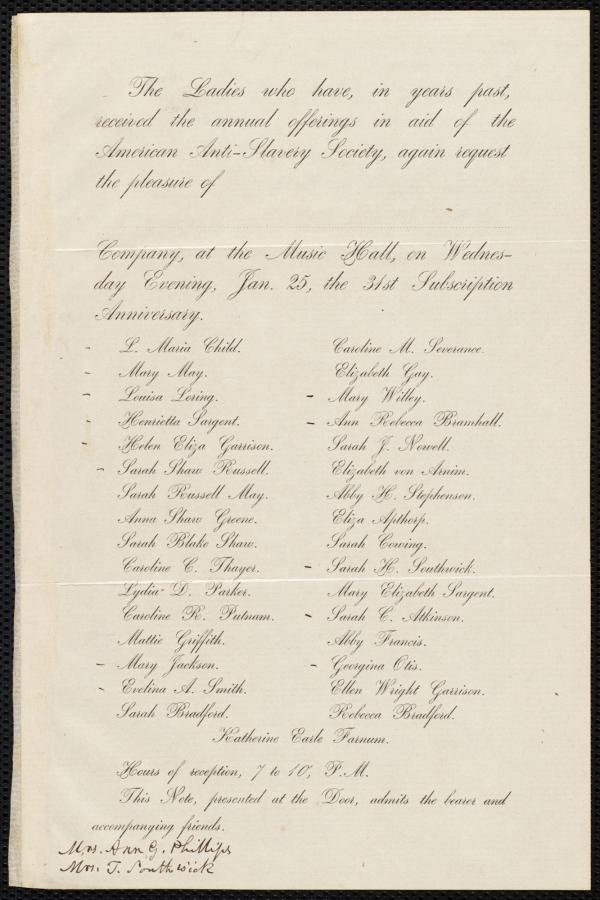 The Ladies who have, in years past,
received the annual offerings in aid of the
American Anti-Slavery Society, again request
the pleasure of
Company, at the Music Hall, on Wednes-
day Evening, Jan. 25, the 31st Subscription
Anniversary.
- L. Maria Child.
- Mary May.
- Louisa Loring.
- Henrietta Sargent.
- Helen Eliza Garrison.
- Sarah Shaw Russell.
Sarah Russell May.
Anna Shaw Greene.
Sarah Blake Shaw.
Caroline C. Thayer.
Lydia D. Parker.
Caroline R. Putnam.
Mattie Griffith.
- Mary Jackson.
- Evelina A. Smith.
Sarah Bradford.
Caroline M. Severance.
Elizabeth Gay.
- Mary Willey.
- Ann Rebecca Bramhall.
Sarah J. Nowell.
Elizabeth von Arnim.
Abby H. Stephenson.
Eliza Apthorp.
Sarah Cowing.
- Sarah H. Southwick.
Mary Elizabeth Sargent.
- Sarah C. Atkinson.
Abby Francis.
- Georgina Otis.
Ellen Wright Garrison.
Rebecca Bradford.
Katherine Earle Farnum.
Hours of reception, 7 to 10, P.M.
This Note, presented at the Door, admits the bearer and
accompanying friends.
Mrs. Ann G. Phillips
Mrs. T. Southwick